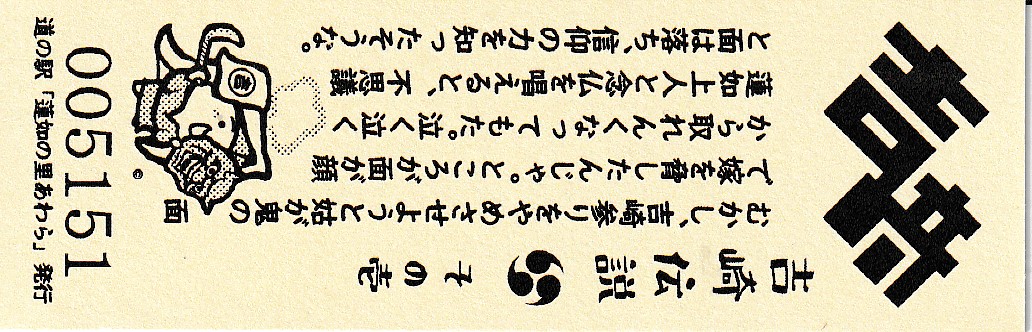 吉崎
吉崎伝説 その壱
むかし、吉崎参りをやめさせようと姑が鬼の面
で嫁を脅したんじゃ。ところが面が顔
から取れんくなってもた。泣く泣く
蓮如上人と念仏を唱えると、不思議
と面は落ち、信仰の力を知ったそうな。
吉
©
005151
道の駅「蓮如の里あわら」発行